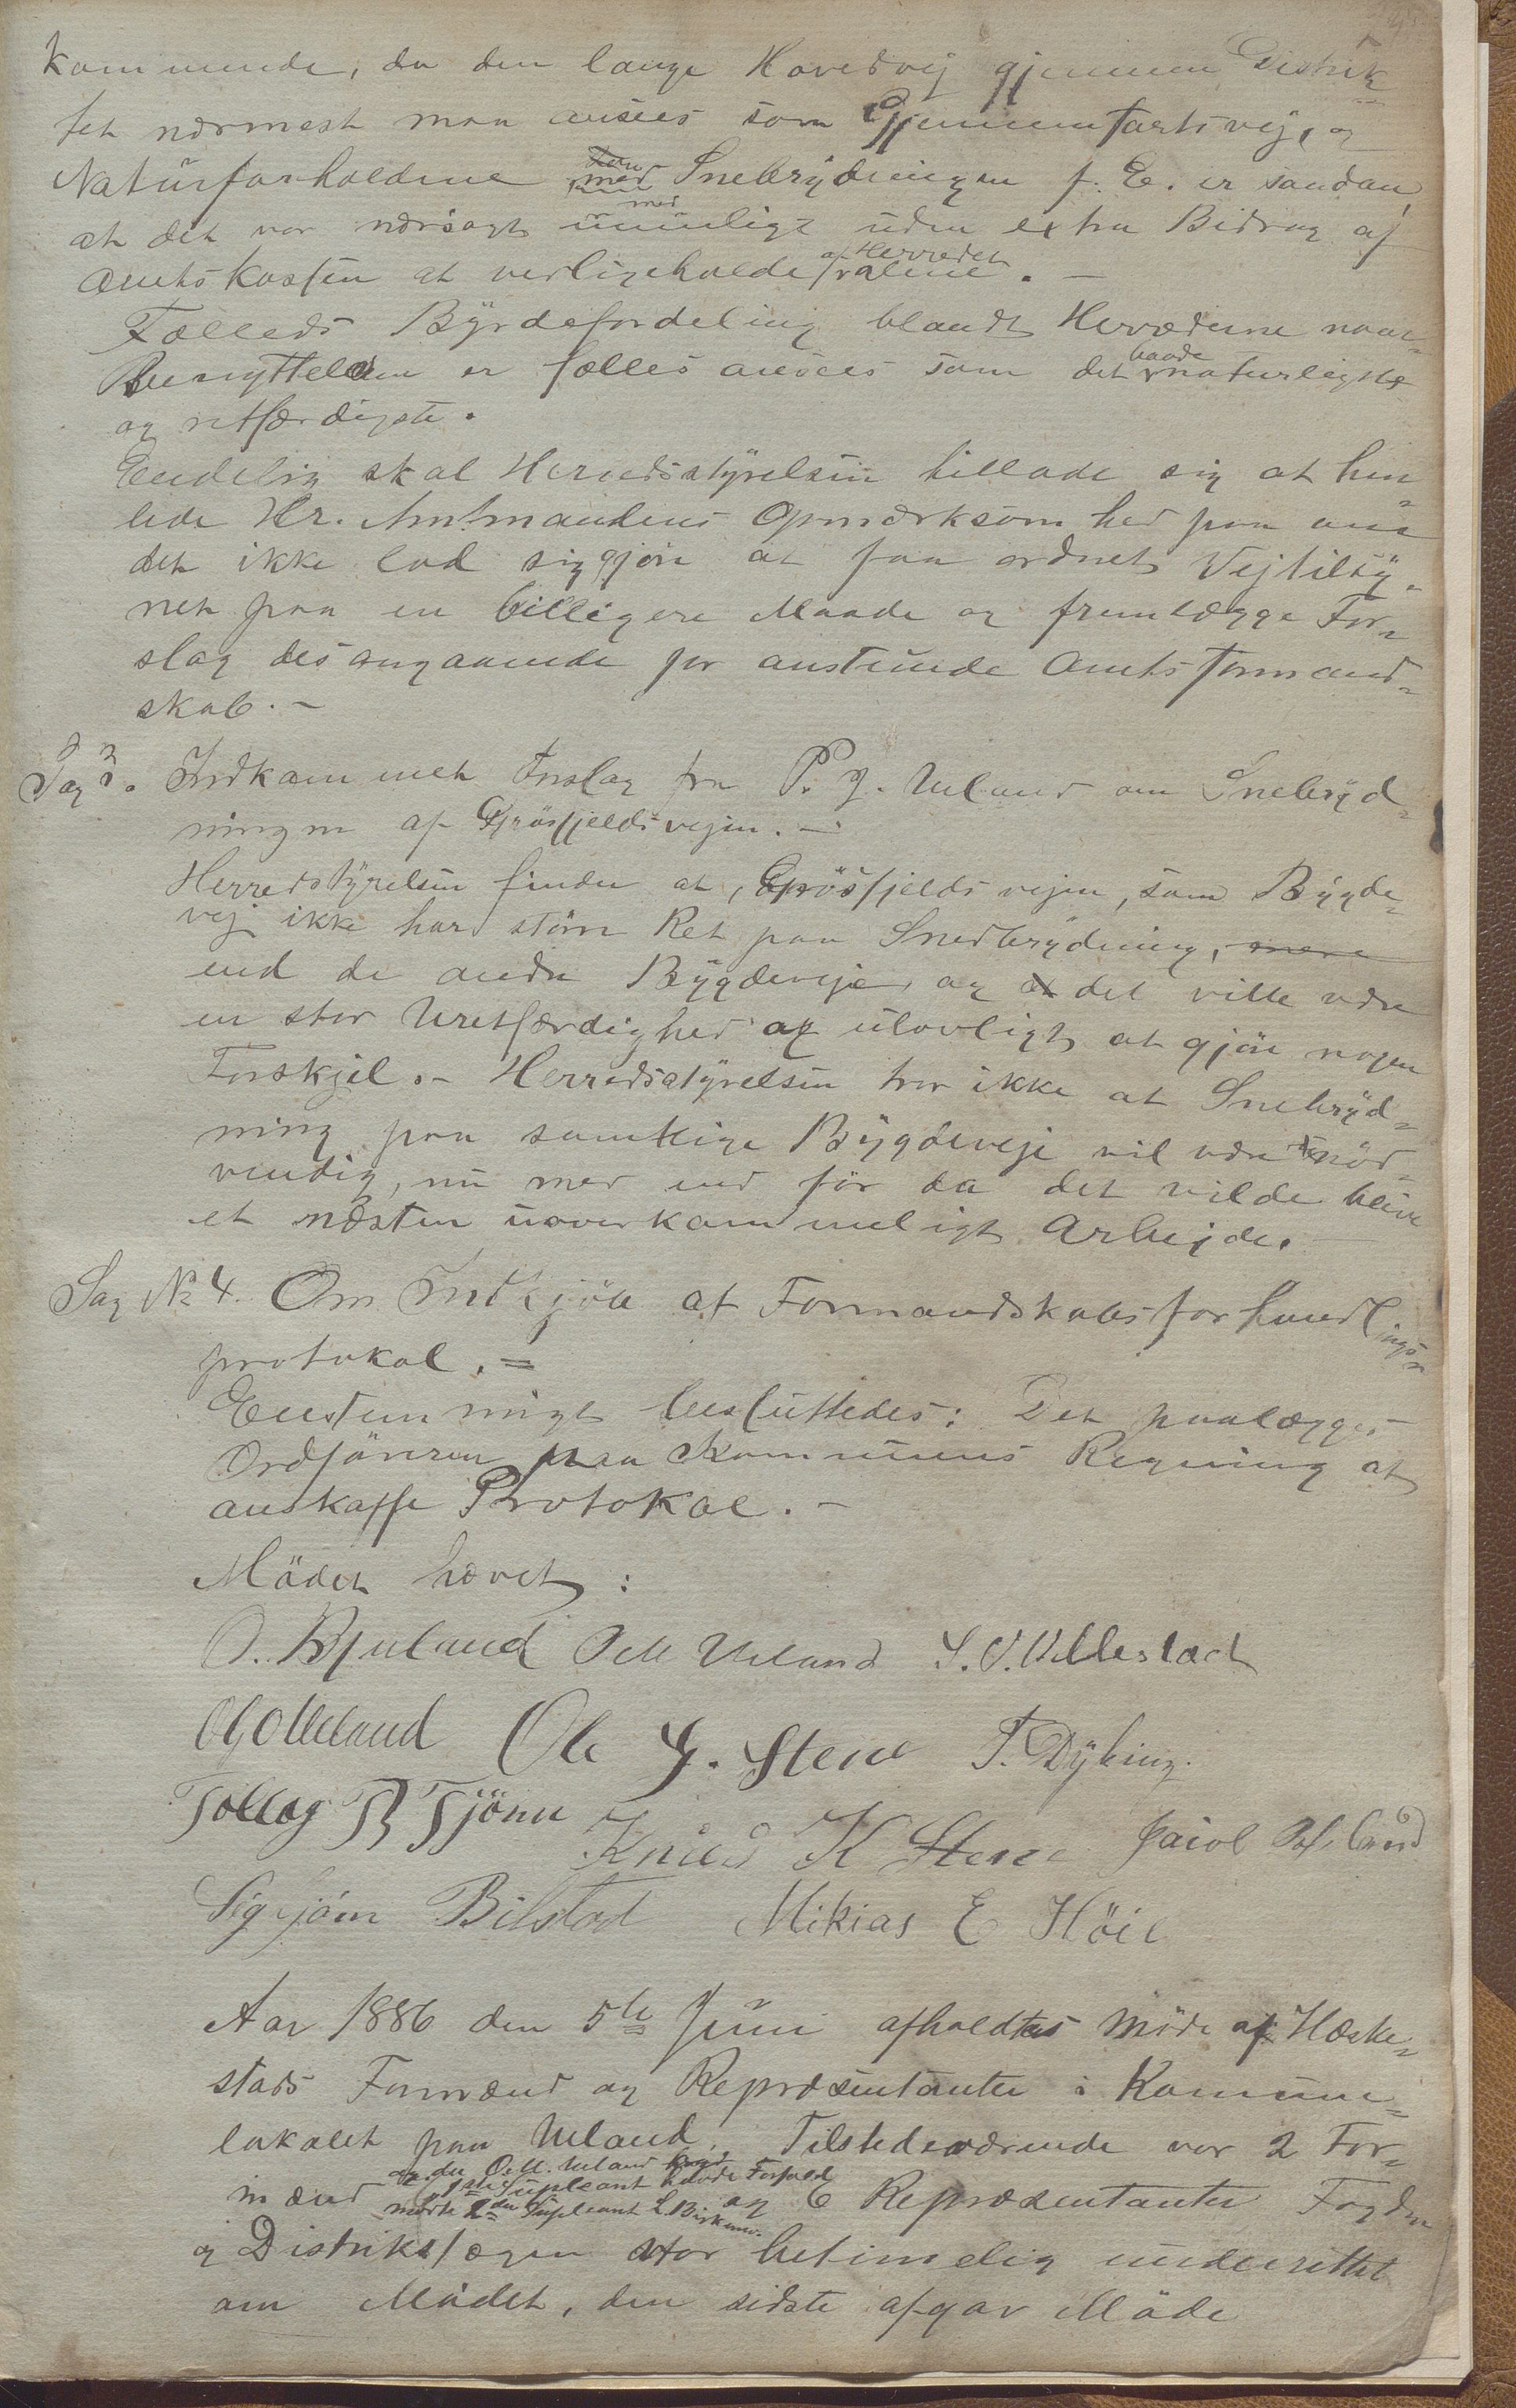 kommende, da den lange Hovedvej gjennem Distrik-
tet nærmest maa ansees som Gjennemfartsvej, og
Naturforholdene med Snebrydningen f. E. er saadan,
at det var nærsagt umuligt uden extra Bidrag af
Amtskassen at vedligeholde af Herredet alene. -
Fælleds Byrdefordeling blandt Herrederne naar
Benyttelsen er fælles ansees som det baade naturligste
og retfærdigste.
Endelig skal Herredsstyrelsen tillade sig at hen-
lede Hr. Amtmandens Opmærksomhed paa om
det ikke lod sig gjøre at faa ordnet Vejtilsy-
net paa en billigere Maade og fremlægge For-
slag desangaaende for anstundende Amtsformand-
skab. -
Sag 3. Indkommet Forslag fra P. J. Ueland om Snebryd-
ningen af Gjrösfjeldsvejen. -
Herredstyrelsen finder at, Gjrösfjeldsvejen, som Bygde-
vej ikke har större Ret paa Snedbrydning, mere
end de andre Bygdeveje, og at det ville være
en stor Uretfærdighed og ulovligt at gjöre nogen
Forskjel. - Herredsstyrelsen tror ikke at Snebryd-
ning paa samtlige Bygdeveje vil være nöd-
vendig, nu mer end för da det vilde blive
et næsten uoverkommeligt Arbejde. -
Sag № 4. Om Indkjöb af Formandskabsforhandlings-
protokol. =
Enstemmigt besluttedes: Det paalægges
Ordföreren paa Kommunens Regning at
anskaffe Protokol. -
Mödet hævet:
O. Bjuland Ole Ueland S. O. Ollestad
O G Ueland Ole G. Stene T. Dybing.
Tollag B Tjönn Knud K Stene Jacob
Sigbjörn Bilstad Mikias E Höie
Aar 1886 den 5te Juni afholdtes Möde af Heske-
stads Formænd og Repræsentanter i Kommune-
lokalet paa Ueland. Tilstedeværende var 2 For-
og da O. U. Ueland
1ste Supleant havde Forfald
mænd mödte 2den Supleant L. Birkemo. og 6 Repræsentanter Fogden
og Distriktslægen var betimelig underrettet
om Mödet, den sidste afgav Möde